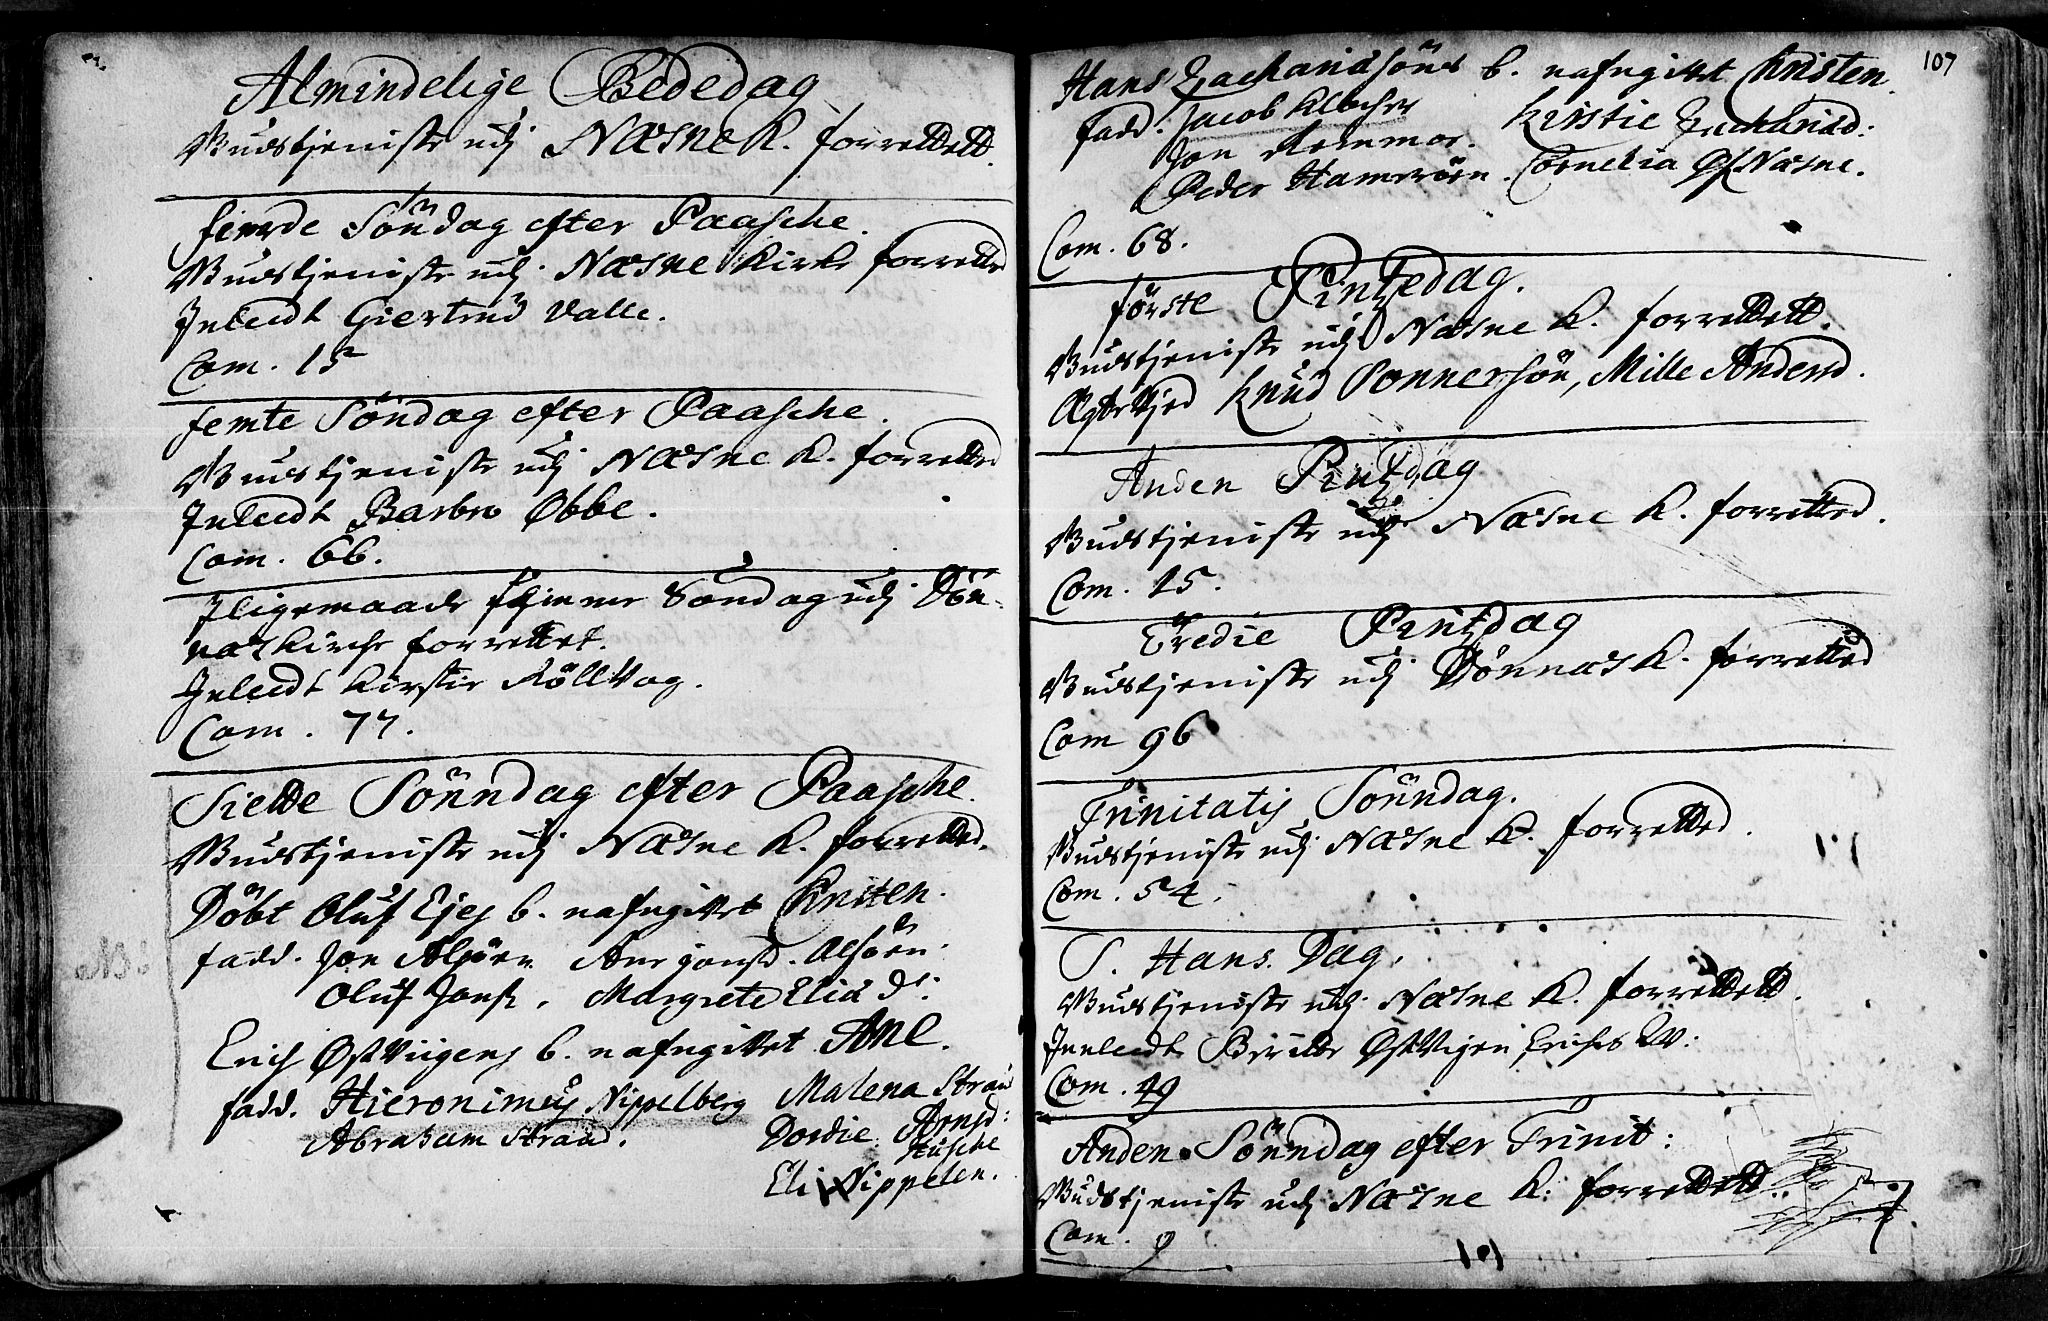 Almindelige Bededag
Gudstjeniste udj Næsne K. forrettett.
fierde Söndag efter Paasche.
Gudstjeniste udj Næsne Kirke forretted
Inleedt Giertrud Valle.
Com. 15
femte Söndag efter Paasche.
Gudstjeniste udj Næsne K. forretted
Inleedt Barbro Øbbe.
Com. 66.
Iligemaade Söndag udj Dön-
næs Kirche forrettet.
Inleedt Kirstie Röllvog.
Com. 77.
Siette Sönndag efter Paasche.
Gudstjeniste udj Næsne K. forretted.
Döbt Oluf Ejes b. nafngivet Kristen.
fadd. Jon Alsöen Ane Jonsd. Alsöen.
Oluf Jons. Margrete Eliæ D:
Erich Østviigens b. nafngivet Ane.
fadd. Hieronimus Nippelberg Malena Strand
Abraham Strand. Dordie Arnsd: Husche
Eli Nippelen.
107
Hans Zachariæsöns b. nafngivet Kristen.
fadd. Jacob Klocher Kirstie Zachariæd:
Jon Remmor. Cornelia Øf Næsne.
Peder Hamerøen.
Com. 68.
förste Pintzedag.
Gudstjeniste udj Næsne K. forrettett.
Ægtevijed Knud Ponnersön, Mille Andersd.
Anden Pintzdag
Gudstjeniste udj Næsne K. forretted.
Com. 15.
Tredie Pintzdag
Gudstjeniste udj Dönnæs K. forretted
Com 96
Trinitatis Sönndag.
Gudstjeniste udj Næsne K. forretted.
Com. 54.
S. Hans Dag.
Gudstjeniste udj Næsne K. forrettett.
Innleedt Biritte Østvigen Erichs Kv:
Com. 49
Anden Sönndag efter Trinit:
Gudstjeniste udj Næsne K: forrettett.
Com. 9